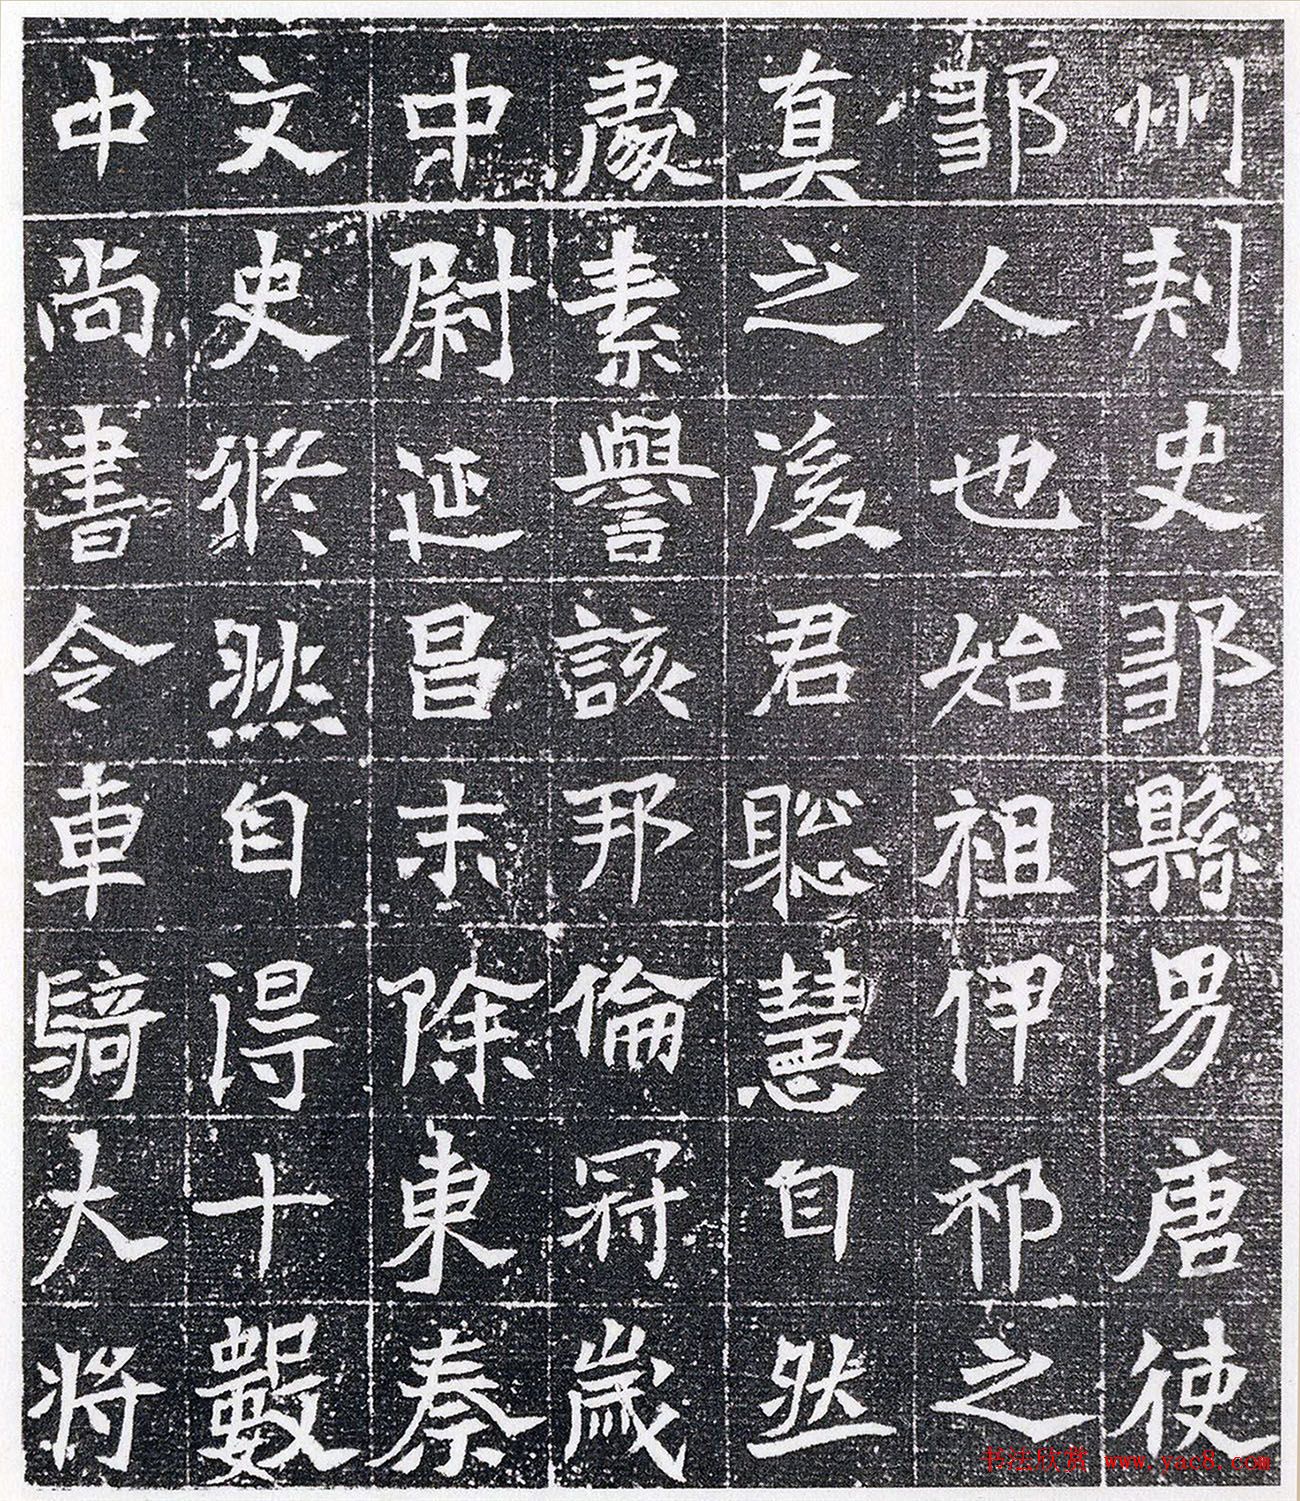 州刺史鄒縣男唐使
鄒人也始祖伊祁之
真之後君聰慧自然
處素譽該邦倫冠歲
中尉延昌末除東秦
文史條然自得十數
中尚書令車騎大將
书法欣赏 www.yac8.com